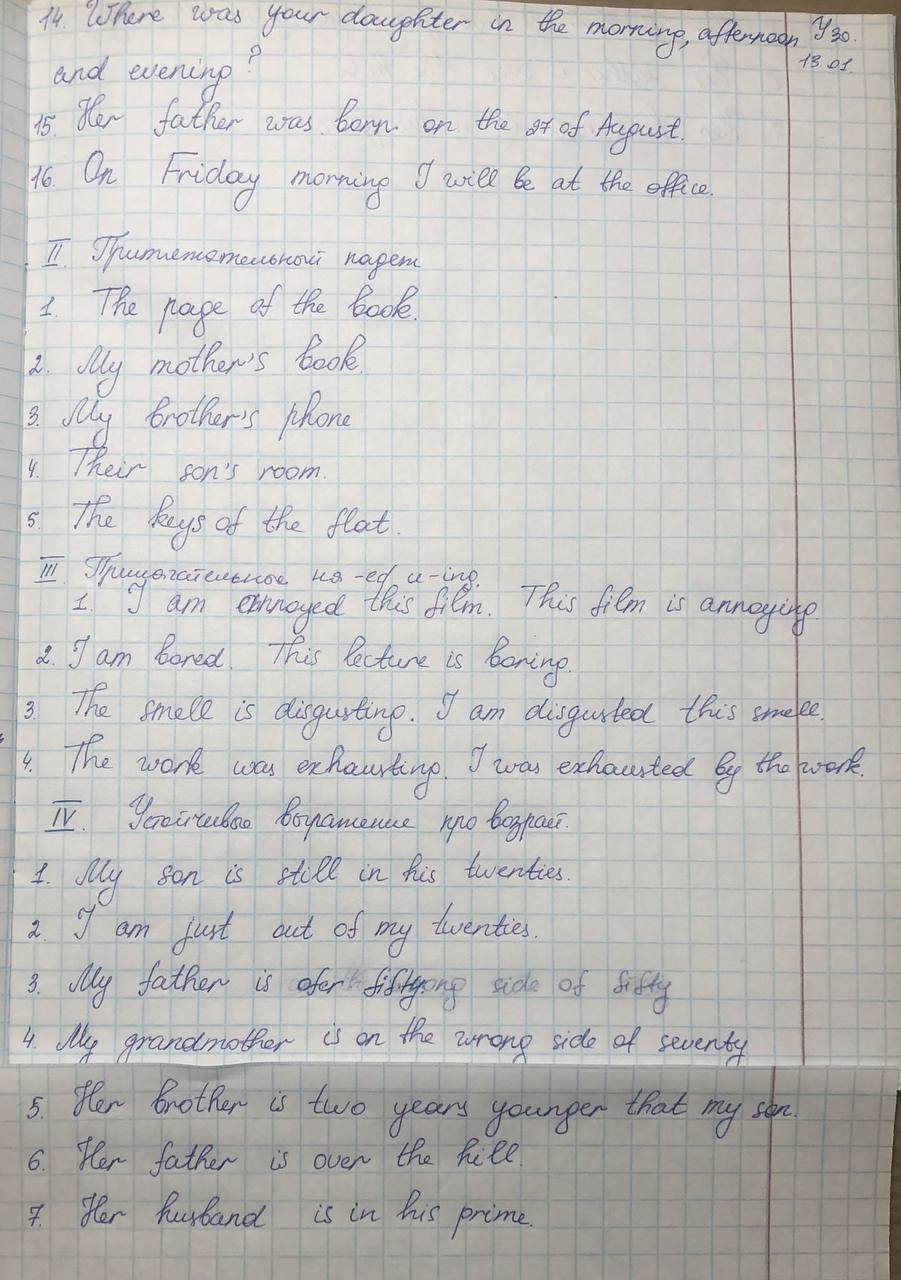 14. Where was your daughter in the morning, afternoon У30.
and evening? 13.01.
15. Her father was born on the 27 of August.
16. On Friday morning I will be at the office.
II. Притяжательный падеж
1. The page of the book.
2. My mother's book.
3. My brother's phone
4. Their son's room.
5. The keys of the flat.
III. Прилагательное на -ed и -ing.
1. I am annoyed this film. This film is annoying.
2. I am bored. This lecture is boring.
3. The smell is disgusting. I am disgusted this smell.
4. The work was exhausting. I was exhausted by the work.
IV. Устойчивые выражение про возраст.
1. My son is still in his twenties.
2. I am just out of my twenties.
3. My father is ofer fifty. side of fifty
4. My grandmother is on the wrong side of seventy
5. Her brother is two years younger that my son.
6. Her father is over the hill.
7. Her husband is in his prime.